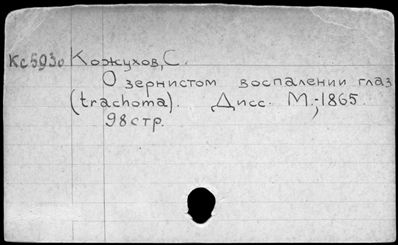 Кс593о Кожухов, С.
О зернистом воспалении глаз
(trachoma). Дисс. М.;-1865.
98стр.